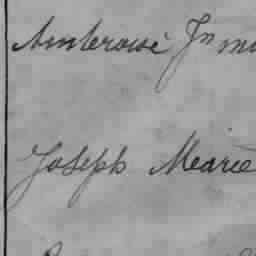 Ambroise Jn
Joseph Marie